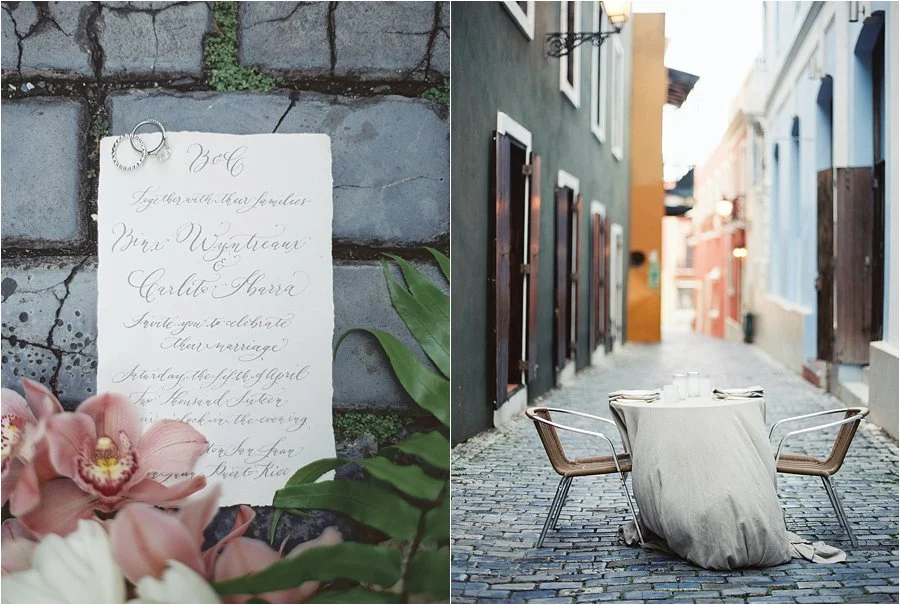 B & C
Together with their families
Binx Wyntreaux
&
Carlitos Ibarra
Invite you to celebrate
their marriage
Saturday, the fifth of April
Two Thousand Sixteen
o'clock in the evening
San Juan
Puerto Rico